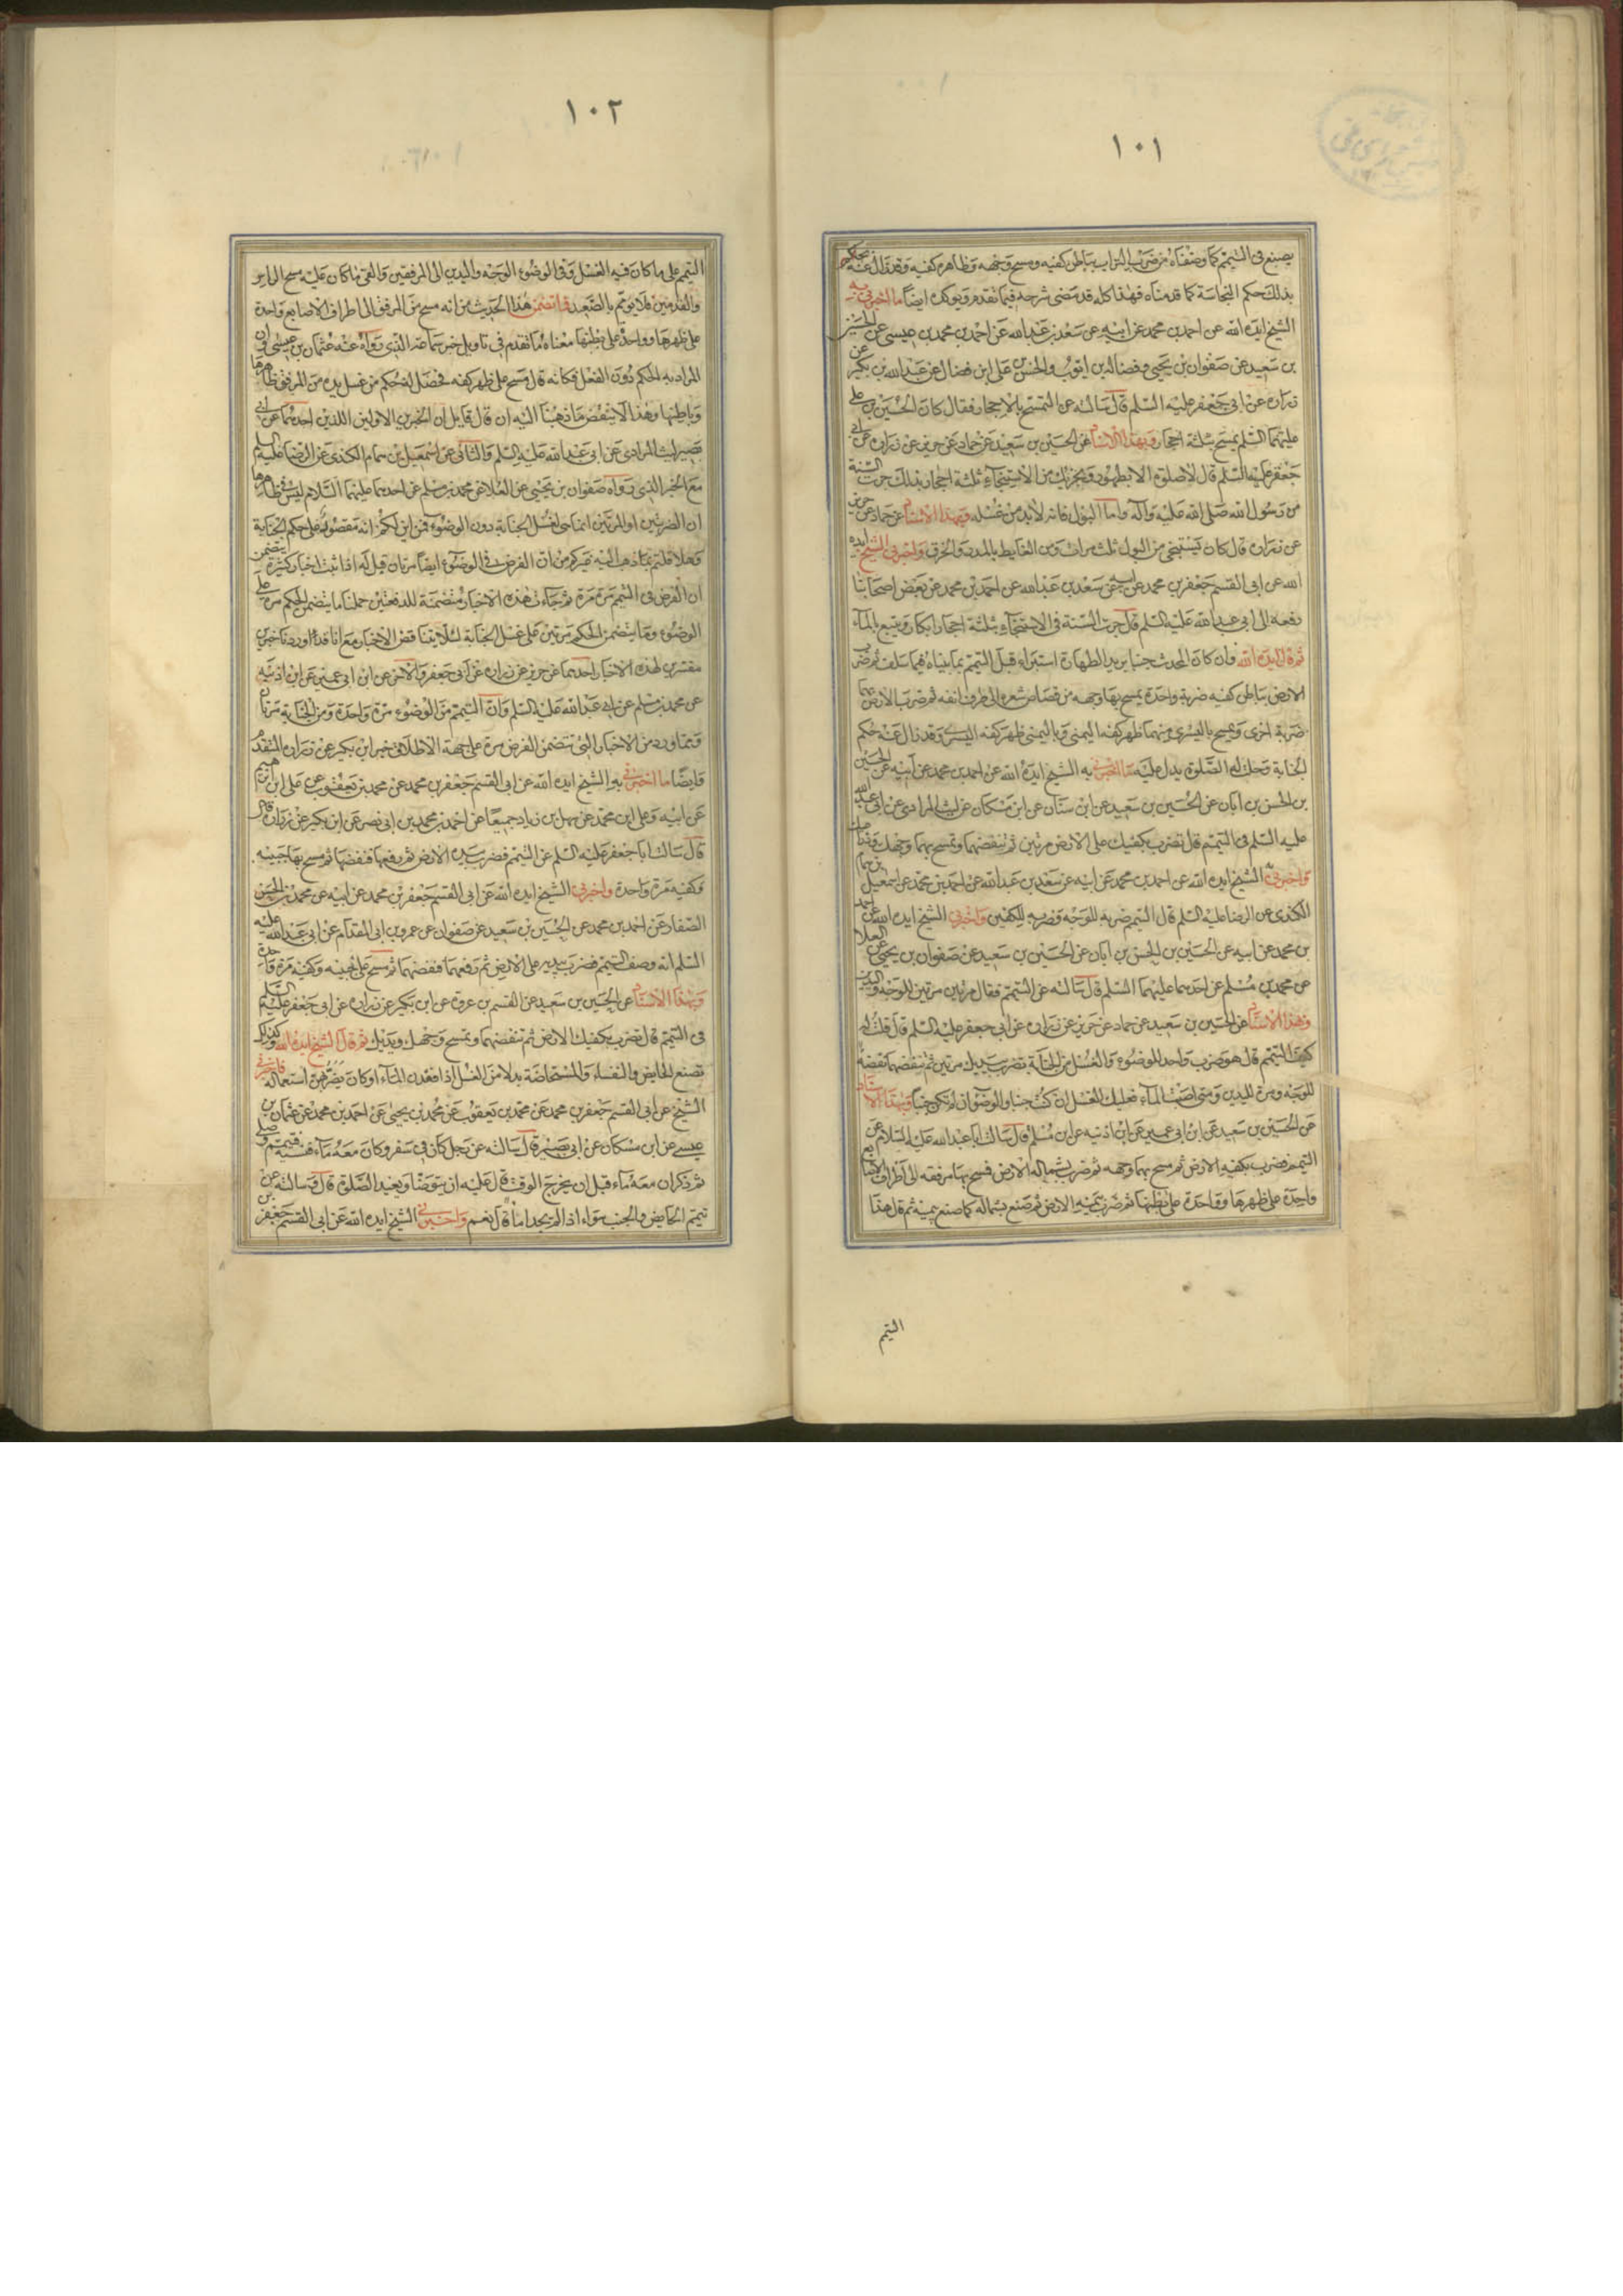 ١٠١
يصنع فى التيمم كما وصفناه من ضرب التراب بباطن كفيه ومسح وجهه وظاهر كفيه وقد زال عنه حكم
بذلك حكم النجاسة كما قدمناه فهذا كله قد مضى شرحه فيما تقدم ويؤكده ايضاً ما اخبرنى به
الشيخ ايده الله عن احمد بن محمد عن ابيه عن سعد بن عبد الله عن احمد بن محمد بن عيسى عن الحسين
بن سعيد عن صفوان بن يحيى وفضالة بن ايوب والحسن بن على ابن فضال عن عبد الله بن بكير عن
زرارة عن ابى جعفر عليه السلم قال سالته عن التمسح بالاحجار فقال كان الحسين بن على
عليهما السلم يمسح بثلثة احجار وبهذا الاسناد عن الحسين بن سعيد عن حماد عن حريز عن زرارة عن ابى
جعفر عليه السلم قال لا صلوة الا بطهور ويجزيك من الاستنجاء ثلثة احجار بذلك جرت السنة
من رسول الله صلى الله عليه وآله واما البول فانه لابد من غسله وبهذا الاسناد عن حماد عن حريز
عن زرارة قال كان يستنجى من البول ثلث مرات ومن الغايط بالمدر والخرق واخبرنى الشيخ ايده
الله عن ابى القسم جعفر بن محمد عن ابيه عن سعد بن عبد الله عن احمد بن محمد عن بعض اصحابنا
رفعه الى ابى عبد الله عليه السلم قال جرت السنة فى الاستنجاء بثلثة احجار ابكار ويتبع بالماء
ثم قال ايده الله فان كان المحدث جنبا يريد الطهارة استبراء قبل التيمم بما بيناه فيما سلف ثم ضرب
الارض بباطن كفيه ضربة واحدة يمسح بها وجهه من قصاص شعره الى طرف انفه ثم ضرب الارض بهما
ضربة اخرى ويمسح باليسرى منهما ظهر كفه اليمنى وباليمنى ظهر كفه اليسرى وقد زال عنه حكم
الجنابة وحل له الصلوة يدل عليه ما اخبرنى به الشيخ ايده الله عن احمد بن محمد عن ابيه عن الحسين
بن الحسن بن ابان عن الحسين بن سعيد عن ابن سنان عن ابن مسكان عن ليث المرادى عن ابى عبد الله
عليه السلم فى التيمم قال تضرب بكفيك على الارض مرتين ثم تنفضهما وتمسح بهما وجهك وذراعيك
واخبرنى الشيخ ايده الله عن احمد بن محمد عن ابيه عن سعد بن عبد الله عن احمد بن محمد عن اسمعيل بن همام
الكندى عن الرضا عليه السلم قال التيمم ضربة للوجه وضربة للكفين واخبرنى الشيخ ايده الله عن احمد
بن محمد عن ابيه عن الحسين بن الحسن بن ابان عن الحسين بن سعيد عن صفوان بن يحيى عن العلا
عن محمد بن مسلم عن احدهما عليهما السلم قال سالته عن التيمم فقال مرتين مرتين للوجه واليدين
وبهذا الاسناد عن الحسين بن سعيد عن حماد عن حريز عن زرارة عن ابى جعفر عليه السلم قال قلت له
كيف التيمم قال هو ضرب واحد للوضوء والغسل من الجنابة تضرب بيديك مرتين ثم تنفضهما نفضة
للوجه ومرة لليدين ومتى اصبت الماء فعليك الغسل ان كنت جنبا والوضوء ان لم تكن جنباً وبهذا الاسناد
عن الحسين بن سعيد عن ابن ابى عمير عن ابن اذينه عن ابن مسلم قال سالت ابا عبد الله عليه السلام عن
التيمم فضرب بكفيه الارض ثم مسح بهما وجهه ثم ضرب بشماله الارض فمسح بها مرفقه الى اطراف الاصابع
واحدة على ظهرها وواحدة على بطنها ثم ضرب بيمينه الارض ثم صنع بشماله كما صنع بيمينه ثم قال هذا
التيمم
١٠٢
التيمم على ما كان فيه الغسل وفى الوضوء الوجه واليدين الى المرفقين والقى ما كان عليه مسح الراس
والقدمين فلا يومم بالصعيد فما تضمن هذا الحديث من انه مسح من المرفق الى اطراف الاصابع واحدة
على ظهرها وواحدة على بطنها معناه ما تقدم فى تاويل خبر سماعة الذى رواه عنه عثمان بن عيسى وان
المراد به الحكم دون الفعل فكانه قال مسح على ظهر كفه فحصل له حكم من غسل يده من المرفق ظاهرها
وباطنها وهذا لا ينقض ما ذهبنا اليه ان قال قايل ان الخبرين الاولين اللذين احدهما عن ابى
بصير ليث المرادى عن ابى عبد الله عليه السلم والثانى عن اسمعيل بن همام الكندى عن الرضا عليه السلم
مع الخبر الذى رواه صفوان بن يحيى عن العلا عن محمد بن مسلم عن احدهما عليهما السلام ليس فى ظاهرها
ان الضربتين او المرتين انما هى لغسل الجنابة دون الوضوء فمن اين لكم انه مقصور على حكم الجنابة
وهلا قلتم بما ذهب اليه غيركم من ان الفرض فى الوضوء ايضاً مرتان قيل له اذا ثبت اخبار كثيرة يتضمن
ان الفرض فى التيمم مرة مرة ثم جاءت هذه الاخبار متضمنة للدفعتين حملنا ما يتضمن الحكم مرة على
الوضوء وما يتضمن الحكم مرتين على غسل الجنابة لئلا يتناقض الاخبار مع انا قد اوردنا خبرين
مفسرين لهذه الاخبار احدهما عن حريز عن زرارة عن ابى جعفر والاخر عن ابن ابى عمير عن ابن اذينه
عن محمد بن مسلم عن ابى عبد الله عليه السلم وان التيمم من الوضوء مرة واحدة ومن الجنابة مرتان
ومما ورد من الاخبار التى تتضمن الفرض مرة على جهة الاطلاق خبر ابن بكير عن زرارة المتقدم
وايضاً ما اخبرنى به الشيخ ايده الله عن ابى القسم جعفر بن محمد عن محمد بن يعقوب عن على ابن ابرهيم
عن ابيه وعلى ابن محمد عن سهل بن زياد جميعًا عن احمد بن محمد بن ابى نصر عن ابن بكير عن زرارة قال
قال سالت ابا جعفر عليه السلم عن التيمم فضرب بيده الارض ثم رفعها فنفضها ثم مسح بها جبينه
وكفيه مرة واحدة واخبرنى الشيخ ايده الله عن ابى القسم جعفر بن محمد عن ابيه عن محمد بن الحسن
الصفار عن احمد بن محمد عن الحسين بن سعيد عن صفوان عن عمرو بن ابى المقدام عن ابى عبد الله عليه
السلم انه وصف التيمم فضرب بيديه على الارض ثم رفعهما فنفضهما ثم مسح على جبينه وكفيه مرة واحدة
وبهذا الاسناد عن الحسين بن سعيد عن القسم بن عروة عن ابن بكير عن زرارة عن ابى جعفر عليه السلم
فى التيمم قال تضرب بكفيك الارض ثم تنفضهما وتمسح وجهك ويديك ثم قال الشيخ ايده الله وكذلك
تصنع الحايض والنفساء والمستحاضة بدلا من الغسل اذا فقدن الماء او كان يضرهن استعماله فاخبرنى
الشيخ عن ابى القسم جعفر بن محمد عن محمد بن يعقوب عن محمد بن يحيى عن احمد بن محمد عن عثمان بن
عيسى عن ابن مسكان عن ابى بصير قال سالته عن رجل كان فى سفر وكان معه ماء فنسيه فتيمم وصلى
ثم ذكر ان معه ماء قبل ان يخرج الوقت قال عليه ان يتوضا ويعيد الصلوة قال وسالته عن
تيمم الحايض والجنب سواء اذا لم يجدا ماءً قال نعم واخبرنى الشيخ ايده الله عن ابى القسم جعفر بن